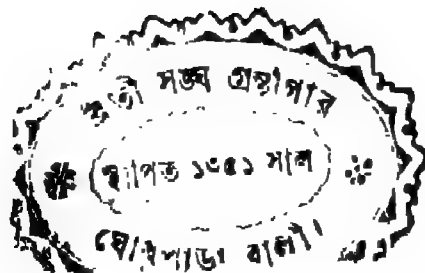 ব্রতী সঙ্ঘ গ্রন্থাগার
স্থাপিত ১৩৪১ সাল
ঘোষপাড়া বালী